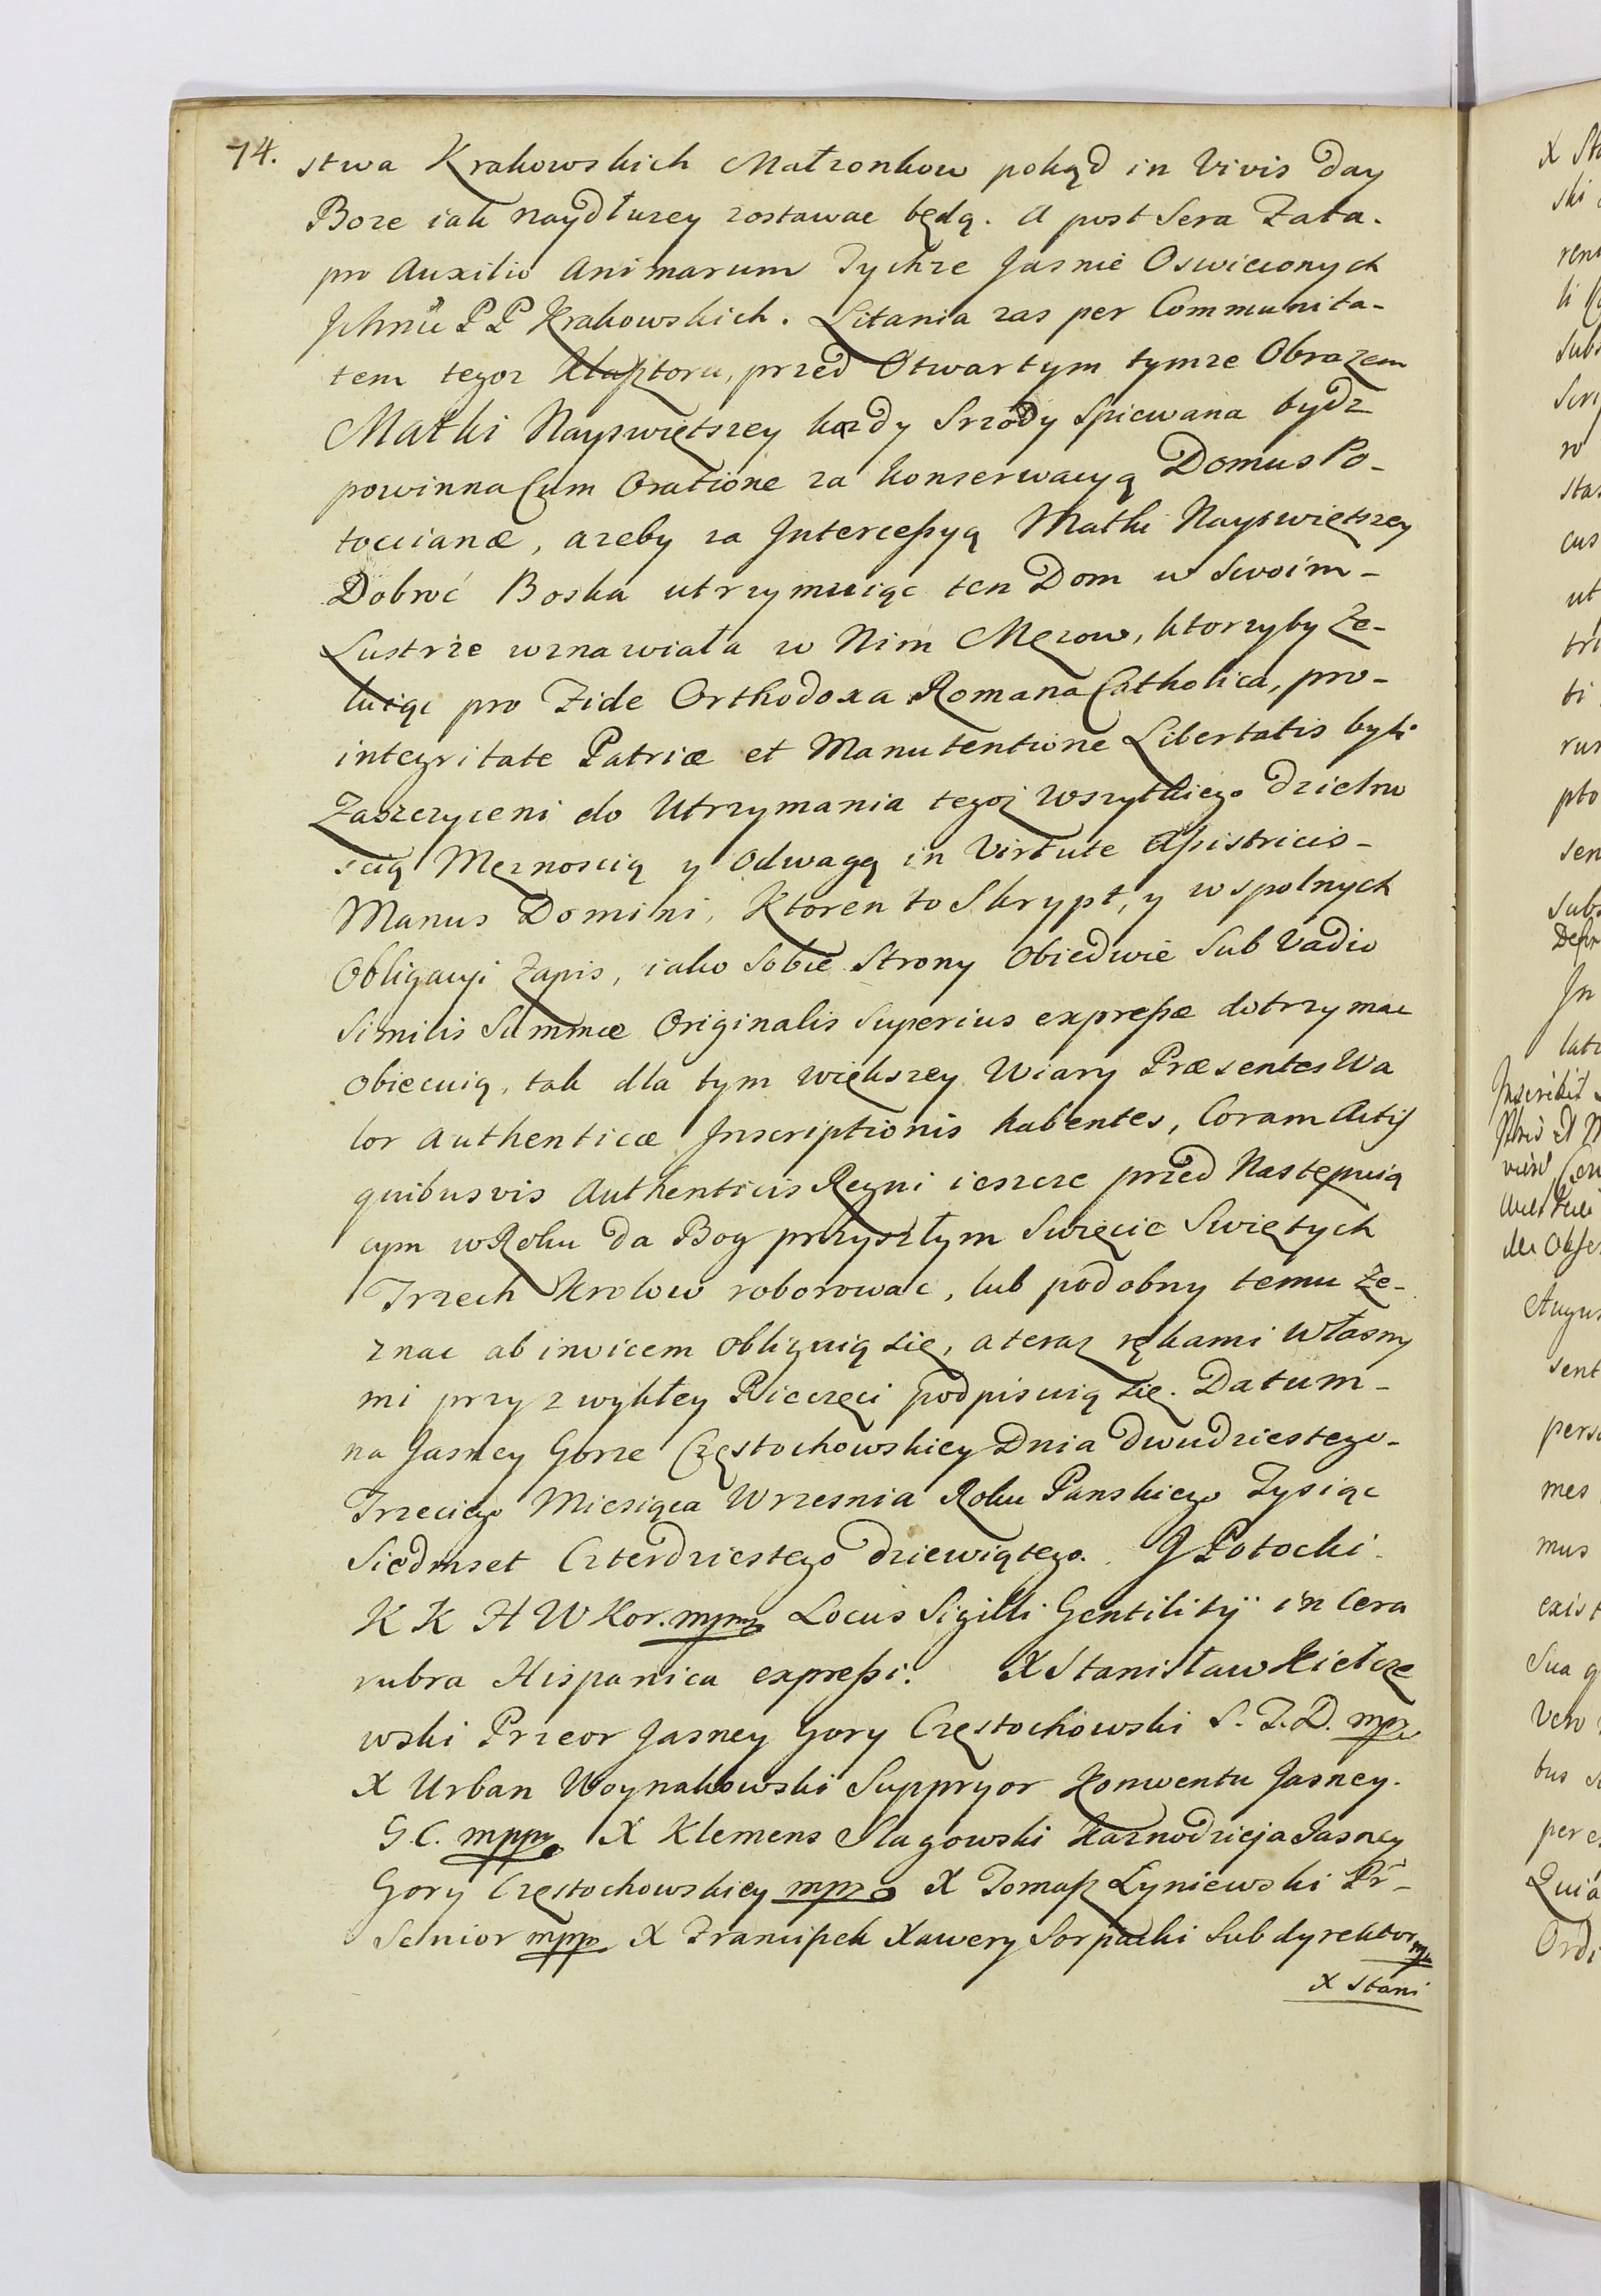 74.
stwa Krakowskich Małzonkow pokąd in Vivis day
Boze iak naydłuzey zostawac będą. A post Sera Fata.
pro Auxilio Animarum Tychze Jasnie Oswieconych
Ichmć PP Krakowskich. Litania zas per Communita-
tem tegoz Klasztoru, przed Otwartym tymze Obrazem
Matki Nayswiętszey kazdy Srzody Spiewana bydz
powinna Cum Oratione za konserwacyą Domus Po-
toccianæ, azeby za Intercessyą Matki Nayswiętszey
Dobroć Boska utrzymuiąc ten Dom w Swoim-
Lustrze wznawiała w Nim Męzow, ktorzyby Ze-
luiąc pro Fide Orthodoxa Romana Catholica, pro-
integritate Patriæ et Manutentione Libertatis byli
Zaszczyceni do Utrzymania tegoz Wszytkiego dzielno
scią Męznoscią y Odwagą in Virtute Assistricis-
Manus Domini, Ktoren to Skrypt, y wspolnych
Obligacyi Zapis, iako Sobie Strony Obiedwie Sub Vadio
Similis Summæ Originalis Superius expressæ dotrzymac
obiecuią, tak dla tym większey Wiary Præsentes Wa
lor Authenticæ Inscriptionis habentes, Coram Actis
quibusvis Authenticis Regni ieszcze przed Następuią
cym w Roku da Bog przyszłym Swięcie Swiętych
Trzech Krolow roborowac, lub podobny temu Ze-
znac ab invicem obliguią się, a teraz rękami Własny
mi przy zwykłey Pieczęci podpisuią się. Datum-
na Jasney Gorze Częstochowskiey Dnia dwudziestego-
Trzeciego Miesiąca Wrzesnia Roku Panskiego Tysiąc
Siedmset Czterdziestego dziewiątego. J Potocki.
K K H W Kor. mpp Locus Sigilli Gentilitÿ in Cera
rubra Hispanica expressi. X Stanisław Kiełcze
wski Przeor Jasney Gory Częstochowski S. T. D. mpp
X Urban Woynakowski Suppryor Konwentu Jasney.
G. C. mpp X Klemens Slagowski Kaznodzieja Jasney
Gory Częstochowskiey mpp X Tomasz Łyniewski Pr-
Senior mpp X Franciszek Xawery Sorpacki Subdyrektor mp
X Stani